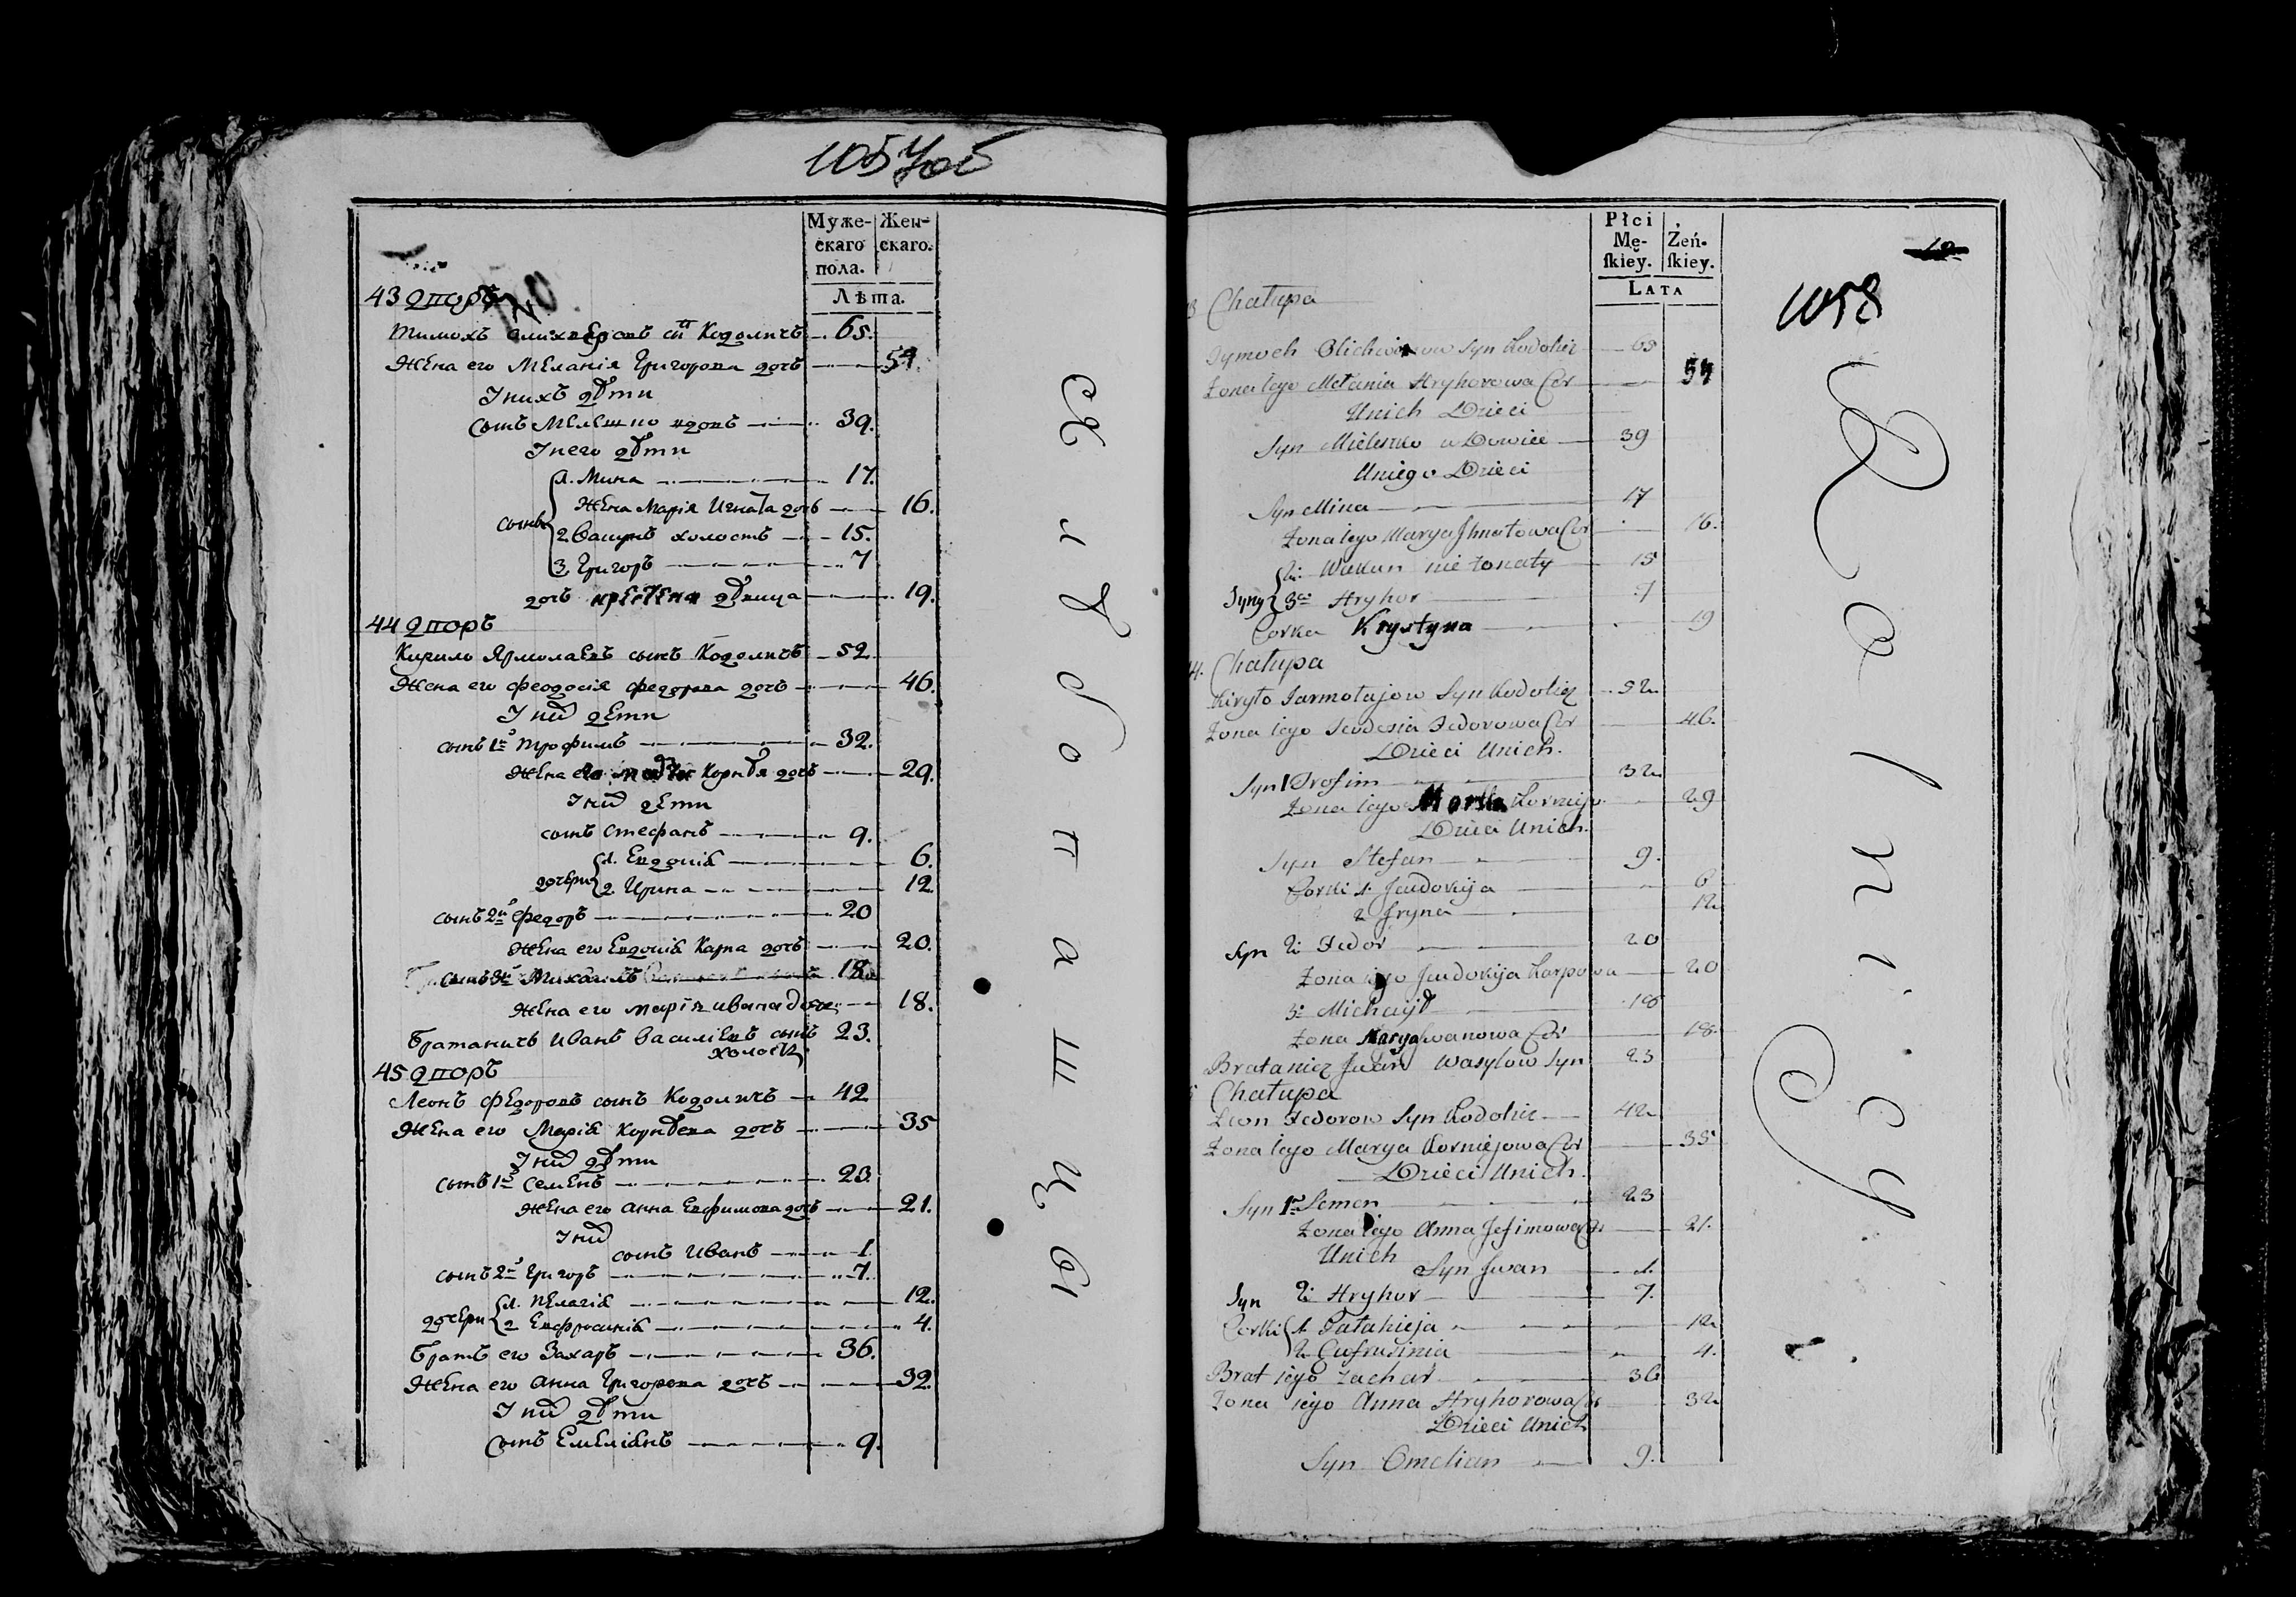 1057об
Муже- Жен-
скаго скаго.
пола.
Лѣта.
43 Дворъ
Тимохъ Олихверовъ сы Кодоличъ 65.
Жена его Меланія Григорова дочь 54.
У нихъ дѣти
сынъ Мелешко вдовъ 39.
У него дѣти
1. Мина 17.
Жена Марія Игната дочь 16.
сыны 2. Вакунъ холостъ 15.
3. Григоръ 7
дочь Крестена дѣвица 19.
44 Дворъ
Кирило Ярмолаевъ сынъ Кодоличъ 52.
Жена его Феодосія Федорова дочь 46.
У них дети
сынъ 1й Трофимъ 32.
Жена его Корнѣя дочь 29.
У них дети
сынъ Стефанъ 9.
дочери 1. Евдокія 6.
2. Ирина 12
сынъ 2й Федоръ 20
Жена его Евдокія Карпа дочь 20.
сынъ 3й Михаилъ 18
Жена его Марія Ивана дочь 18.
Братаничъ Иванъ Василіевъ сынъ 23.
холостъ
45 Дворъ
Леонъ Федоровъ сынъ Кодоличъ 42
Жена его Марія Корнѣева дочь 35
У них дѣти
сынъ 1й Семенъ 23.
Жена его Анна Евфимова дочь 21.
У них
сынъ Иванъ 1.
сынъ 2й Григоръ 7.
дочери 1. Пелагія 12.
2 Евфросинія 4.
Братъ его Захаръ 36.
Жена его Анна Григорева дочь 32.
У них дѣти
Сынъ Емеліянъ 9.
Хлѣбопашцы
Płci
Mę- Żeń-
ſkiey. ſkiey.
LATA
12
1058
3 Chałupa
Tymoch Olichwerow Syn Kodolicz 65
Żona iego Mełania Hryhorowa Cor 54
Unich Dzieci
Syn Mieleszko wdowiec 39
Uniego Dzieci
Syn Mina 17
Żona iego Marya Ihnatowa Cor 16.
2i Wakun nie żonaty 15
Syny 3ci Hryhor 7
Corka Krystyna 19
44. Chałupa
Kiryło Jarmołajow Syn Kodolicz 52
Żona iego Teodosia Fedorowa Cor 46.
Dzieci Unich.
Syn 1 Trofim 32
Żona iego Marta Korniejo 29
Dzieci Unich.
Syn Stefan 9.
Corki 1. Jeudokija 6
2 Jryna 12
Syn 2i Fedor 20
Żona iego Jeudokija Karpowa 20
3i Michayło 18
Żona Marya Jwanowa Cor 18
Bratanicz Jwan Wasylow Syn 23
Chałupa
Leon Fedorow Syn Kodolicz 42
Żona iego Marya Korniejowa Cor 35
Dzieci Unich.
Syn 1szy Semen 23
Żona iego Anna Jefimowa Cor 21.
Unich
Syn Jwan 1.
Syn 2i Hryhor 7.
Corki 1. Pałahieja 12
2. Eufrusinia 4.
Brat iego Zachar 36
Żona iego Anna Hryhorowa Cor 32
Dzieci Unich
Syn Omelian 9.
Rolnicy